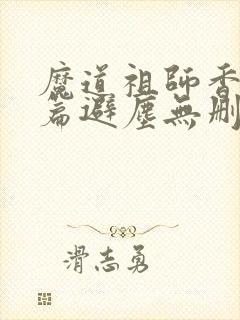 魔道祖師香
篇避塵無刪
滑志勇